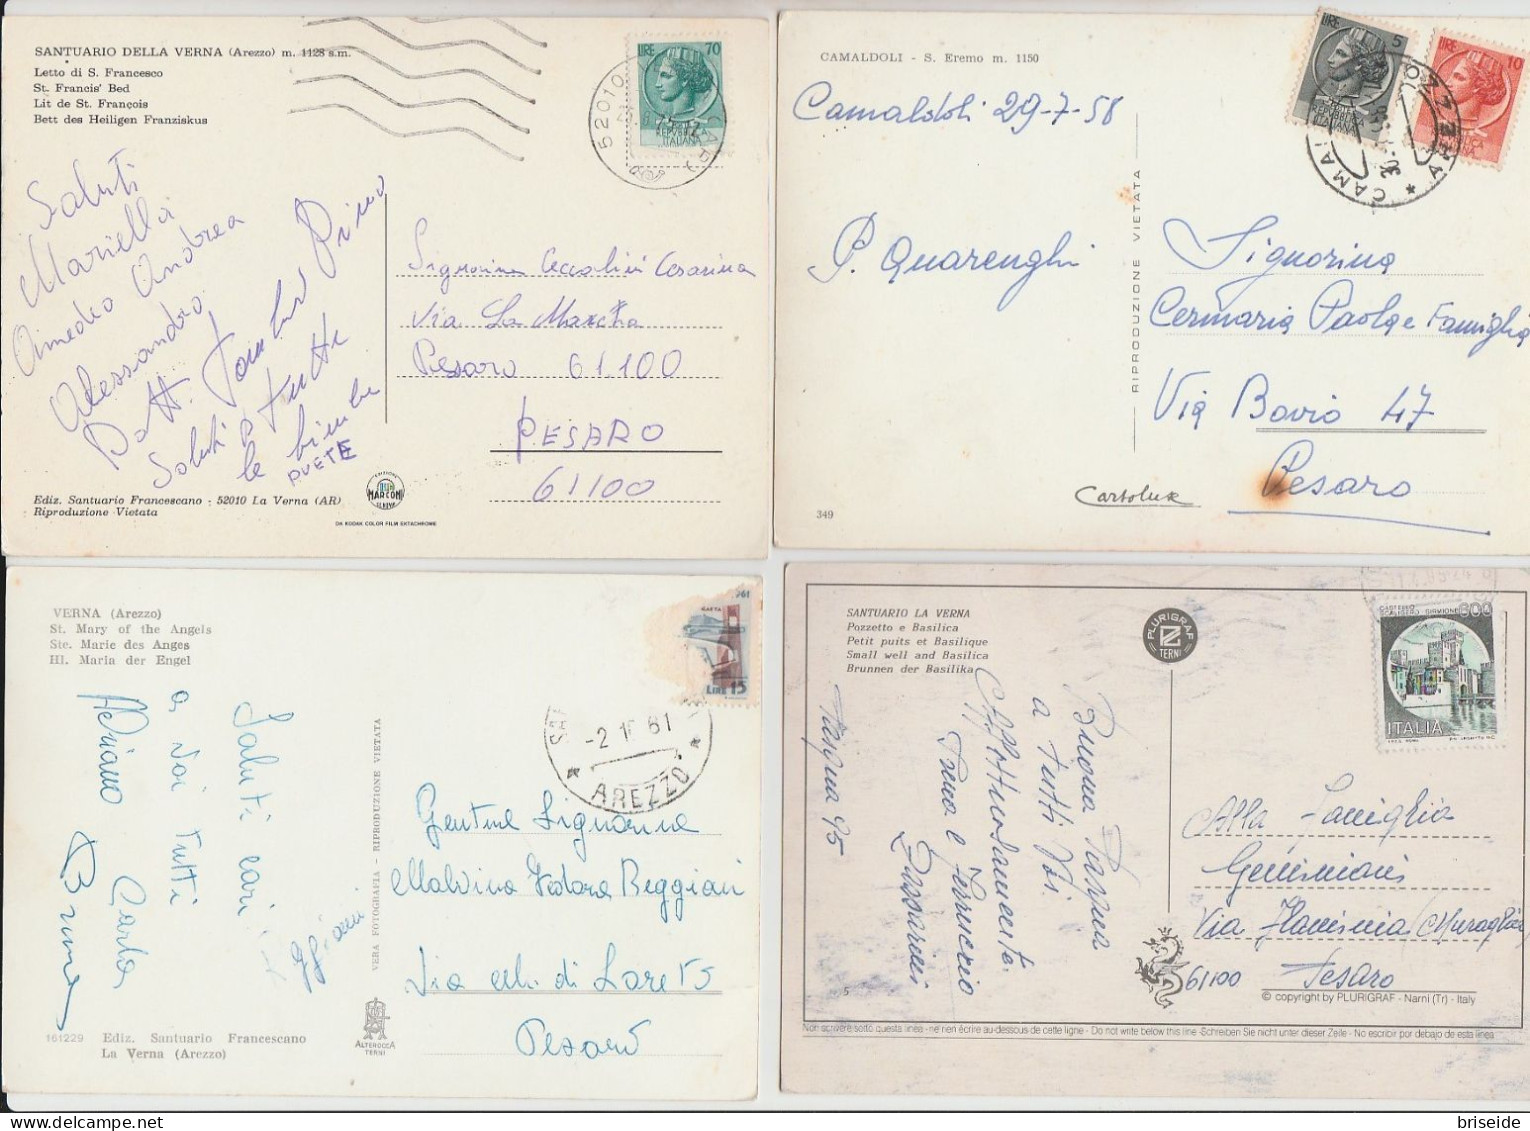 SANTUARIO DELLA VERNA (Arezzo) m. 1128 s.m.
Letto di S. Francesco
St. Francis' Bed
Lit de St. François
Bett des Heiligen Franziskus
LIRE 70
REPVBBLICA
ITALIANA
52010
Saluti
Mariella
Amedeo Andrea
Alessandro
Pino
Saluti a tutti
le bimbe
Signorina Ceccolini Cesarina
Via La Marcha
Pesaro 61100
PESARO
61100
EDIZIONI
MARCONI
GENOVA
Ediz. Santuario Francescano - 52010 La Verna (AR)
Riproduzione Vietata
DA KODAK COLOR FILM EKTACHROME
CAMALDOLI - S. Eremo m. 1150
LIRE 5
LIRE 10
Camaldoli 29-7-58
P. Quarenghi
RIPRODUZIONE VIETATA
Signorina
Cermaria Paola e Famiglia
Via Bovio 47
Pesaro
Cartolux
349
VERNA (Arezzo)
St. Mary of the Angels
Ste. Marie des Anges
Hl. Maria der Engel
GAETA
LIRE 15
AREZZO
Saluti cari
a voi tutti
Adriano Carla
Bruna
VERA FOTOGRAFIA - RIPRODUZIONE VIETATA
Gentile Signorina
Malvina Fedora Beggiari
Via M. di Loreto
Pesaro
161229
Ediz. Santuario Francescano
La Verna (Arezzo)
ALTEROCCA
TERNI
SANTUARIO LA VERNA
Pozzetto e Basilica
Petit puits et Basilique
Small well and Basilica
Brunnen der Basilika
PLURIGRAF
TERNI
600
ITALIA
Pasqua 95
Buona Pasqua
a tutti Voi
Affettuosamente
Pino e Ferruccio
Alla Famiglia
Gemignani
Via Flaminia (Muraglia)
61100 Pesaro
5
© copyright by PLURIGRAF - Narni (Tr) - Italy
Non scrivere sotto questa linea - ne rien écrire au-dessous de cette ligne - Do not write below this line - Schreiben Sie nicht unter dieser Zeile - No escribir por debajo de esta linea
briseide